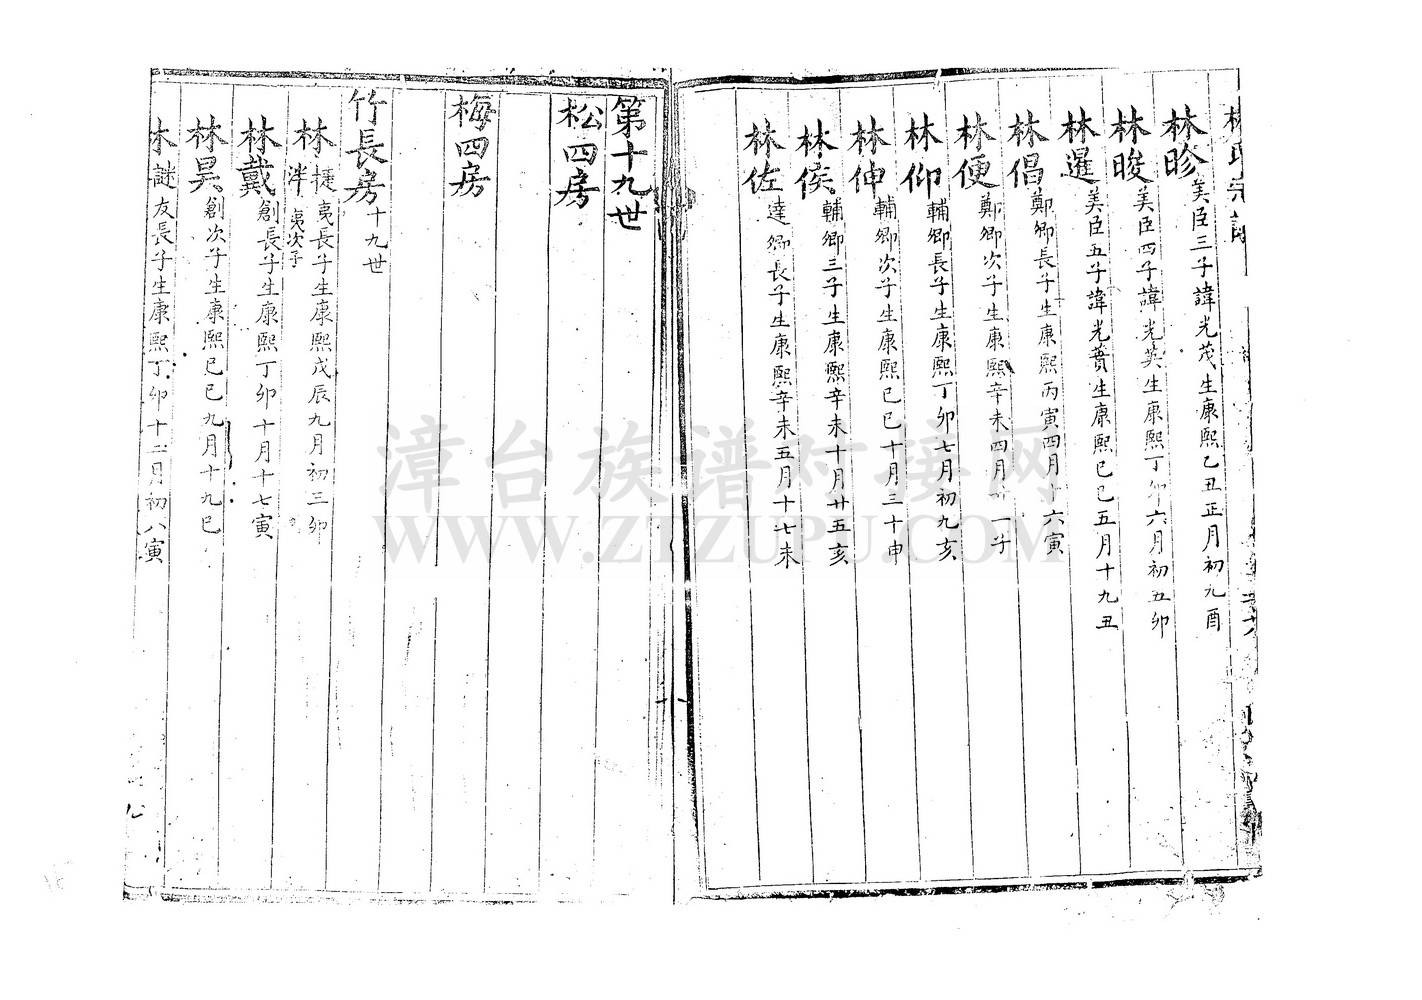 林氏宗譜
林昣美臣三子諱光茂生康熙乙丑正月初九酉
林晙美臣四子諱光英生康熙丁卯六月初五卯
林暹美臣五子諱光蕡生康熙己巳五月十九丑
林倡鄭卿長子生康熙丙寅四月十六寅
林便鄭卿次子生康熙辛未四月廿一子
林仰輔卿長子生康熙丁卯七月初九亥
林伸輔卿次子生康熙己巳十月三十申
林俟輔卿三子生康熙辛未十月廿五亥
林佐達卿長子生康熙辛未五月十七未
第十九世
松四房
梅四房
竹長房十九世
林捷夷長子生康熙戊辰九月初三卯
泮夷次子
林戴創長子生康熙丁卯十月十七寅
林昊創次子生康熙己巳九月十九巳
林謎友長子生康熙丁卯十二月初八寅
漳台族谱对接网
WWW.ZTZUPU.COM